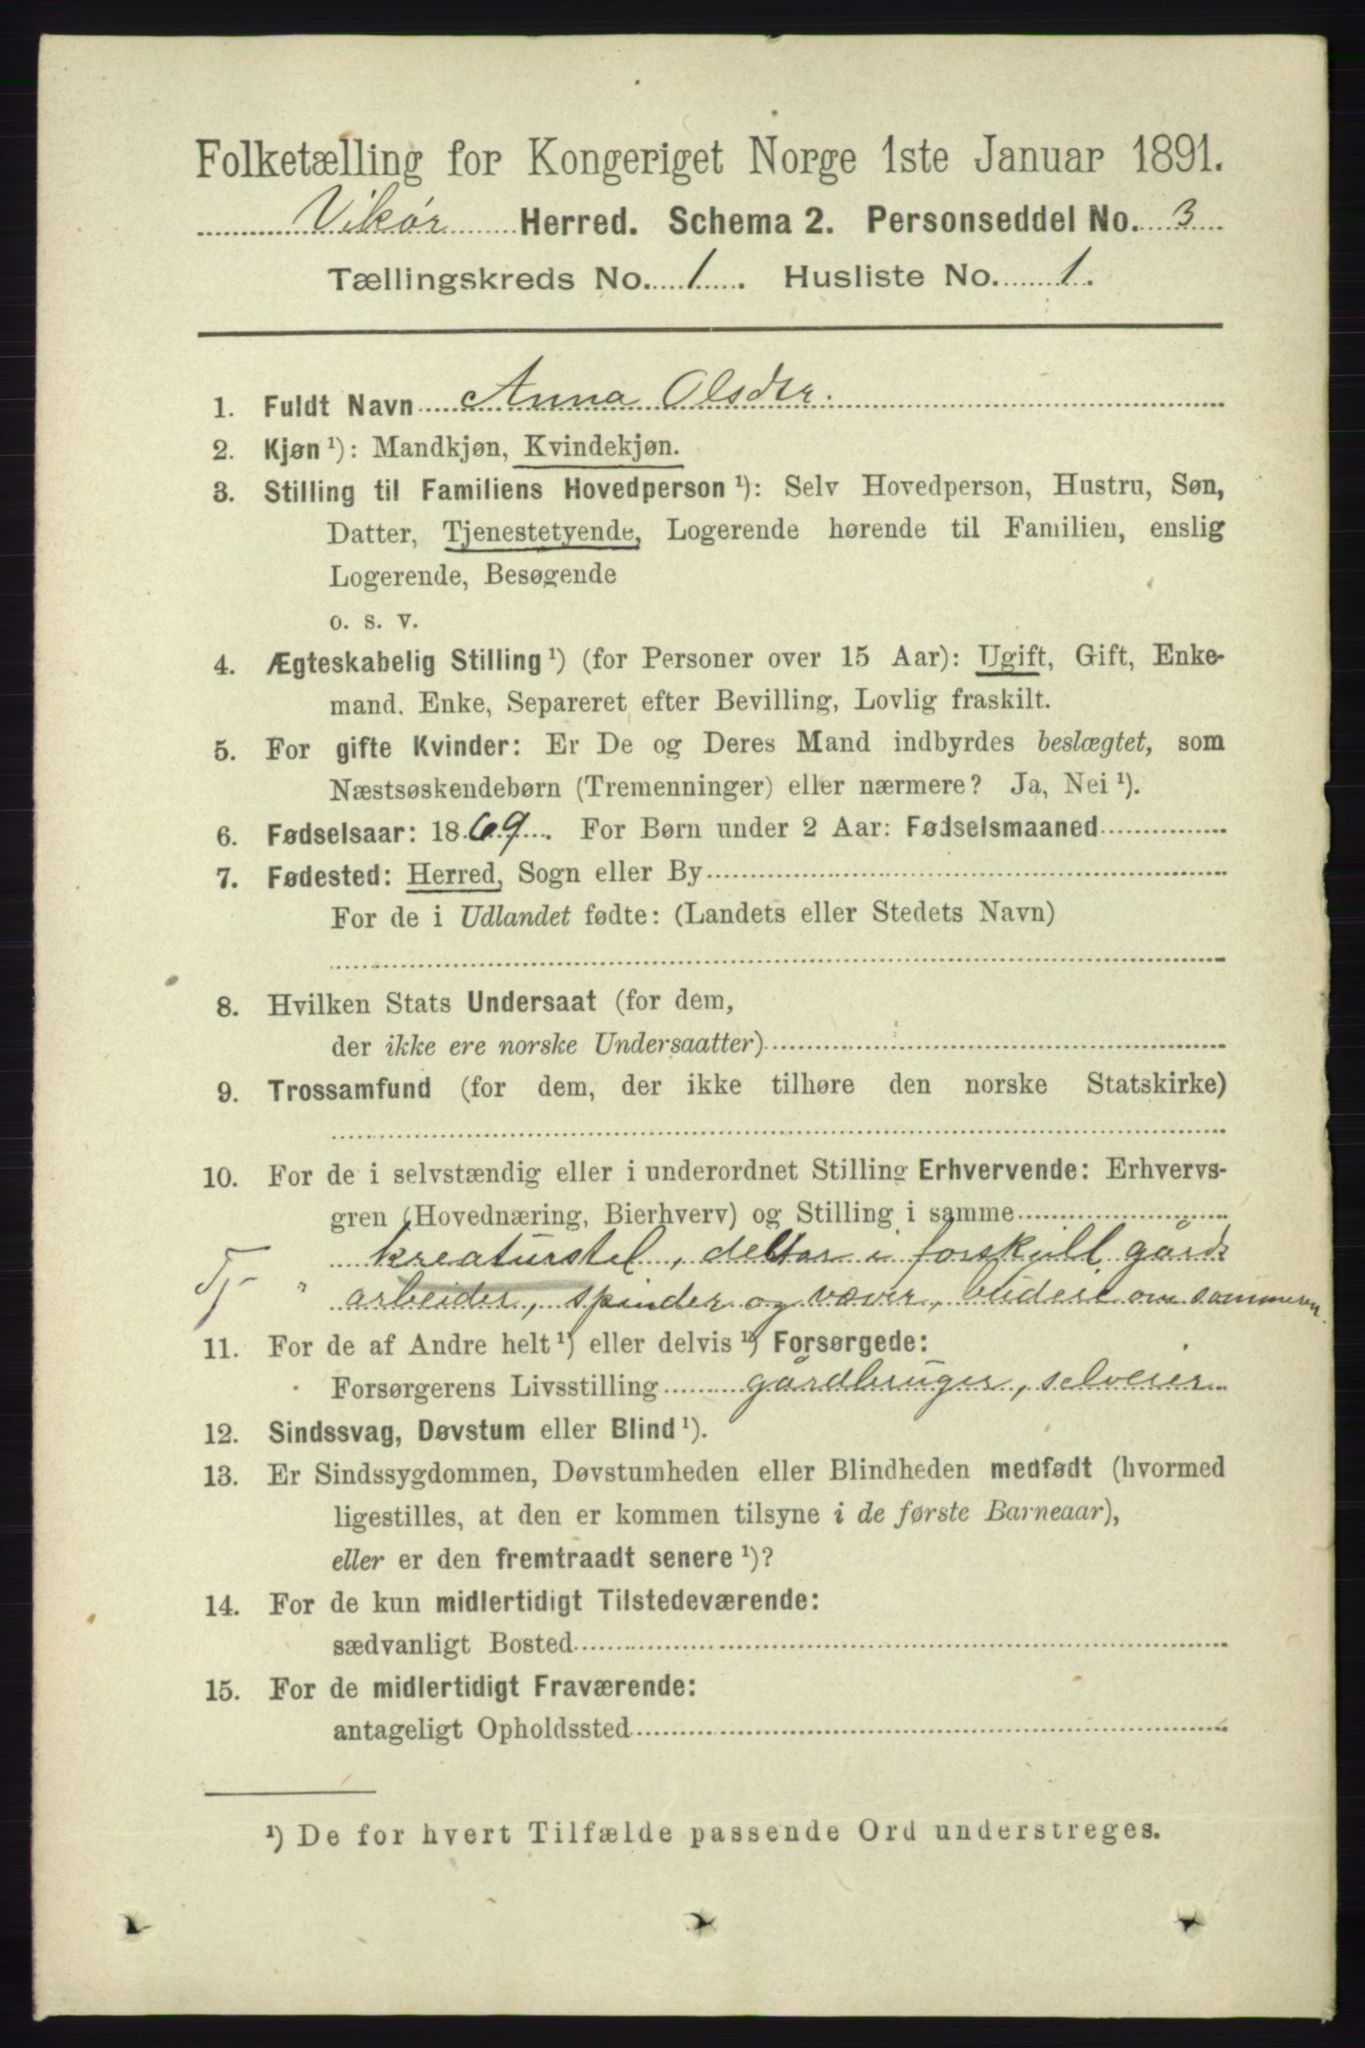 Folketælling for Kongeriget Norge 1ste Januar 1891.
Vikør Herred. Schema 2. Personseddel No. 3
Tællingskreds No. 1. Husliste No. 1.
1. Fuldt Navn Anna Olsdtr.
2. Kjøn ¹): Mandkjøn, Kvindekjøn.
3. Stilling til Familiens Hovedperson ¹): Selv Hovedperson, Hustru, Søn,
Datter, Tjenestetyende, Logerende hørende til Familien, enslig
Logerende, Besøgende
o. s. v.
4. Ægteskabelig Stilling ¹) (for Personer over 15 Aar): Ugift, Gift, Enke-
mand. Enke, Separeret efter Bevilling, Lovlig fraskilt.
5. For gifte Kvinder: Er De og Deres Mand indbyrdes beslægtet, som
Næstsøskendebørn (Tremenninger) eller nærmere? Ja, Nei ¹).
6. Fødselsaar: 1869. For Børn under 2 Aar: Fødselsmaaned
7. Fødested: Herred, Sogn eller By
For de i Udlandet fødte: (Landets eller Stedets Navn)
8. Hvilken Stats Undersaat (for dem,
der ikke ere norske Undersaatter)
9. Trossamfund (for dem, der ikke tilhøre den norske Statskirke)
10. For de i selvstændig eller i underordnet Stilling Erhvervende: Erhvervs-
gren (Hovednæring, Bierhverv) og Stilling i samme
kreaturstel, deltar i forskjell. gårds
Tj- " arbeider, spinder og væver, budeie om sommeren.
11. For de af Andre helt ¹) eller delvis ¹) Forsørgede:
Forsørgerens Livsstilling gårdbruger, selveier
12. Sindssvag, Døvstum eller Blind ¹).
13. Er Sindssygdommen, Døvstumheden eller Blindheden medfødt (hvormed
ligestilles, at den er kommen tilsyne i de første Barneaar),
eller er den fremtraadt senere ¹)?
14. For de kun midlertidigt Tilstedeværende:
sædvanligt Bosted
15. For de midlertidigt Fraværende:
antageligt Opholdssted
¹) De for hvert Tilfælde passende Ord understreges.